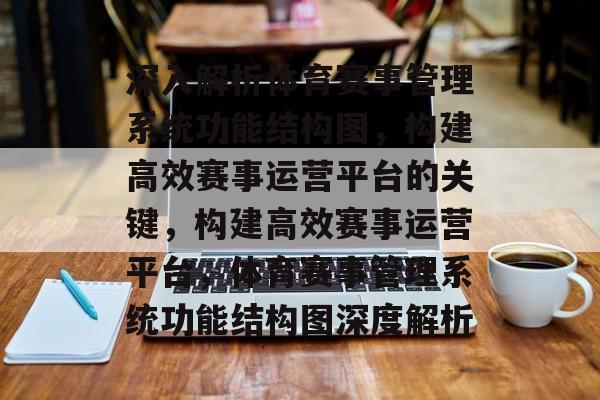 深入解析体育赛事管理
系统功能结构图，构建
高效赛事运营平台的关
键，构建高效赛事运营
平台，体育赛事管理系
统功能结构图深度解析